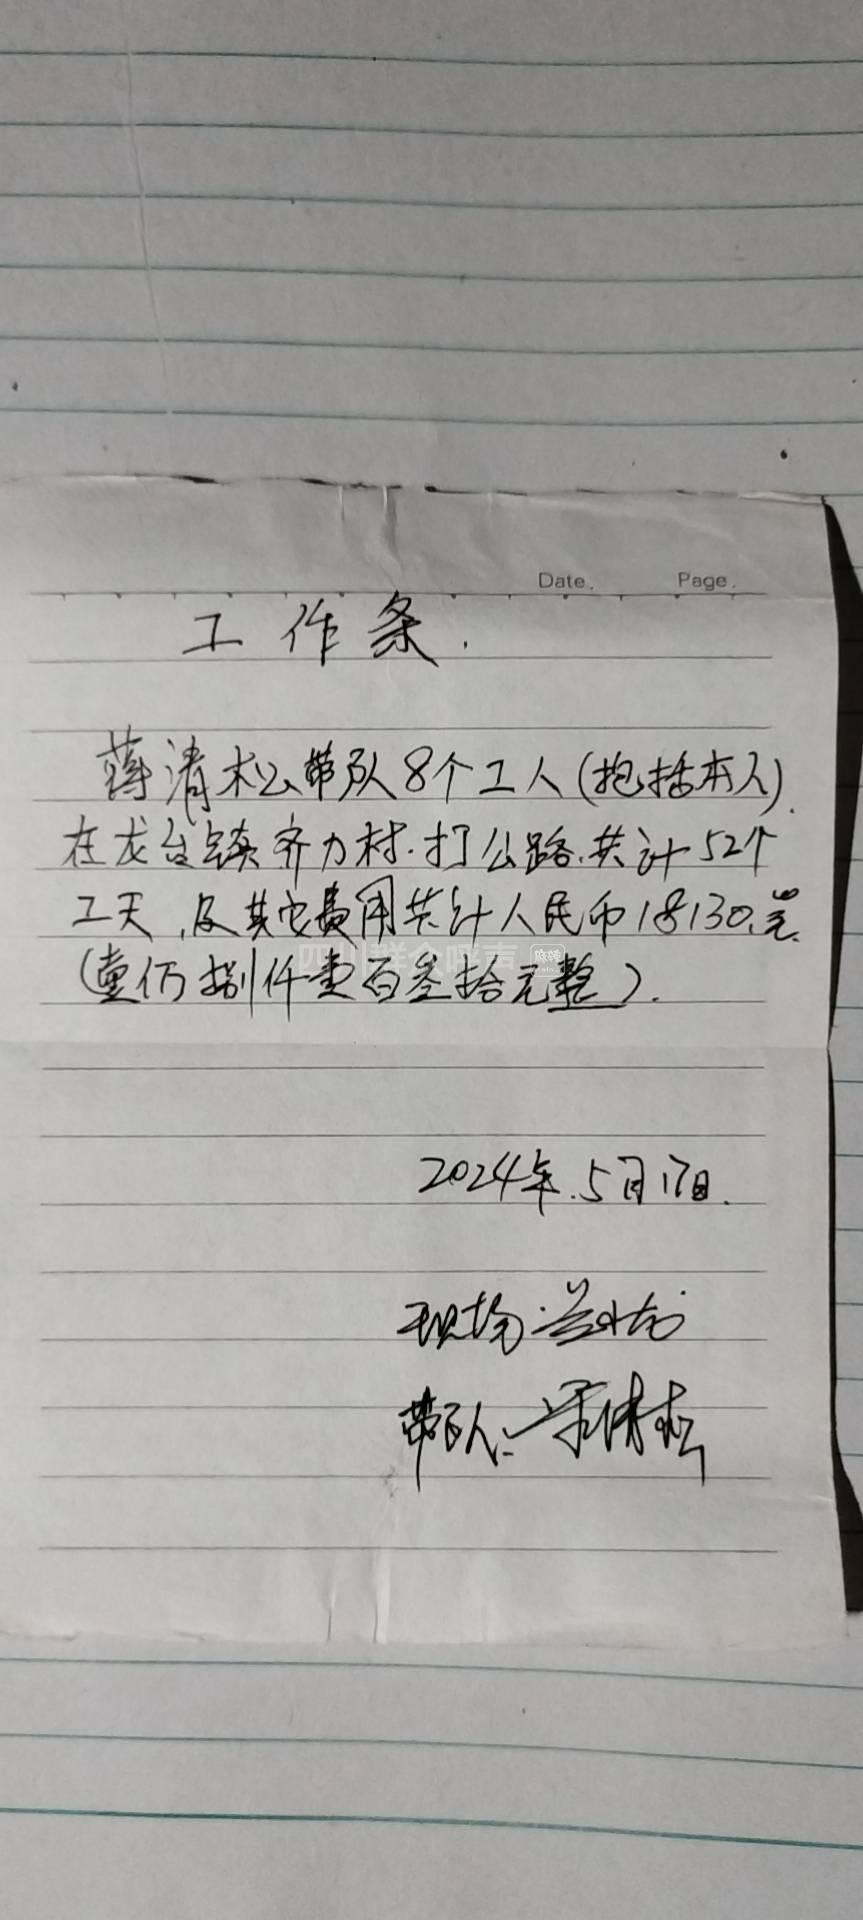 Date.
Page.
工作条.
蒋清松带队8个工人(抱括本人).
在龙台镇齐力村.打公路.共计52个
工天,及其它费用共计人民币18130.元.
(壹仿捌仟壹百叁拾元整).
四川群众呼声 麻辣
2024年.5月17日.
现场:
带队人:蒋清松